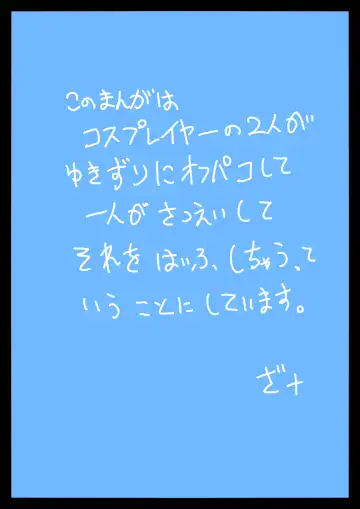 このまんがは
コスプレイヤーの2人が
ゆきずりにオフパコして
一人がさつえいして
それをはいふ、しちゃう、て
いうことにしています。
ざ十